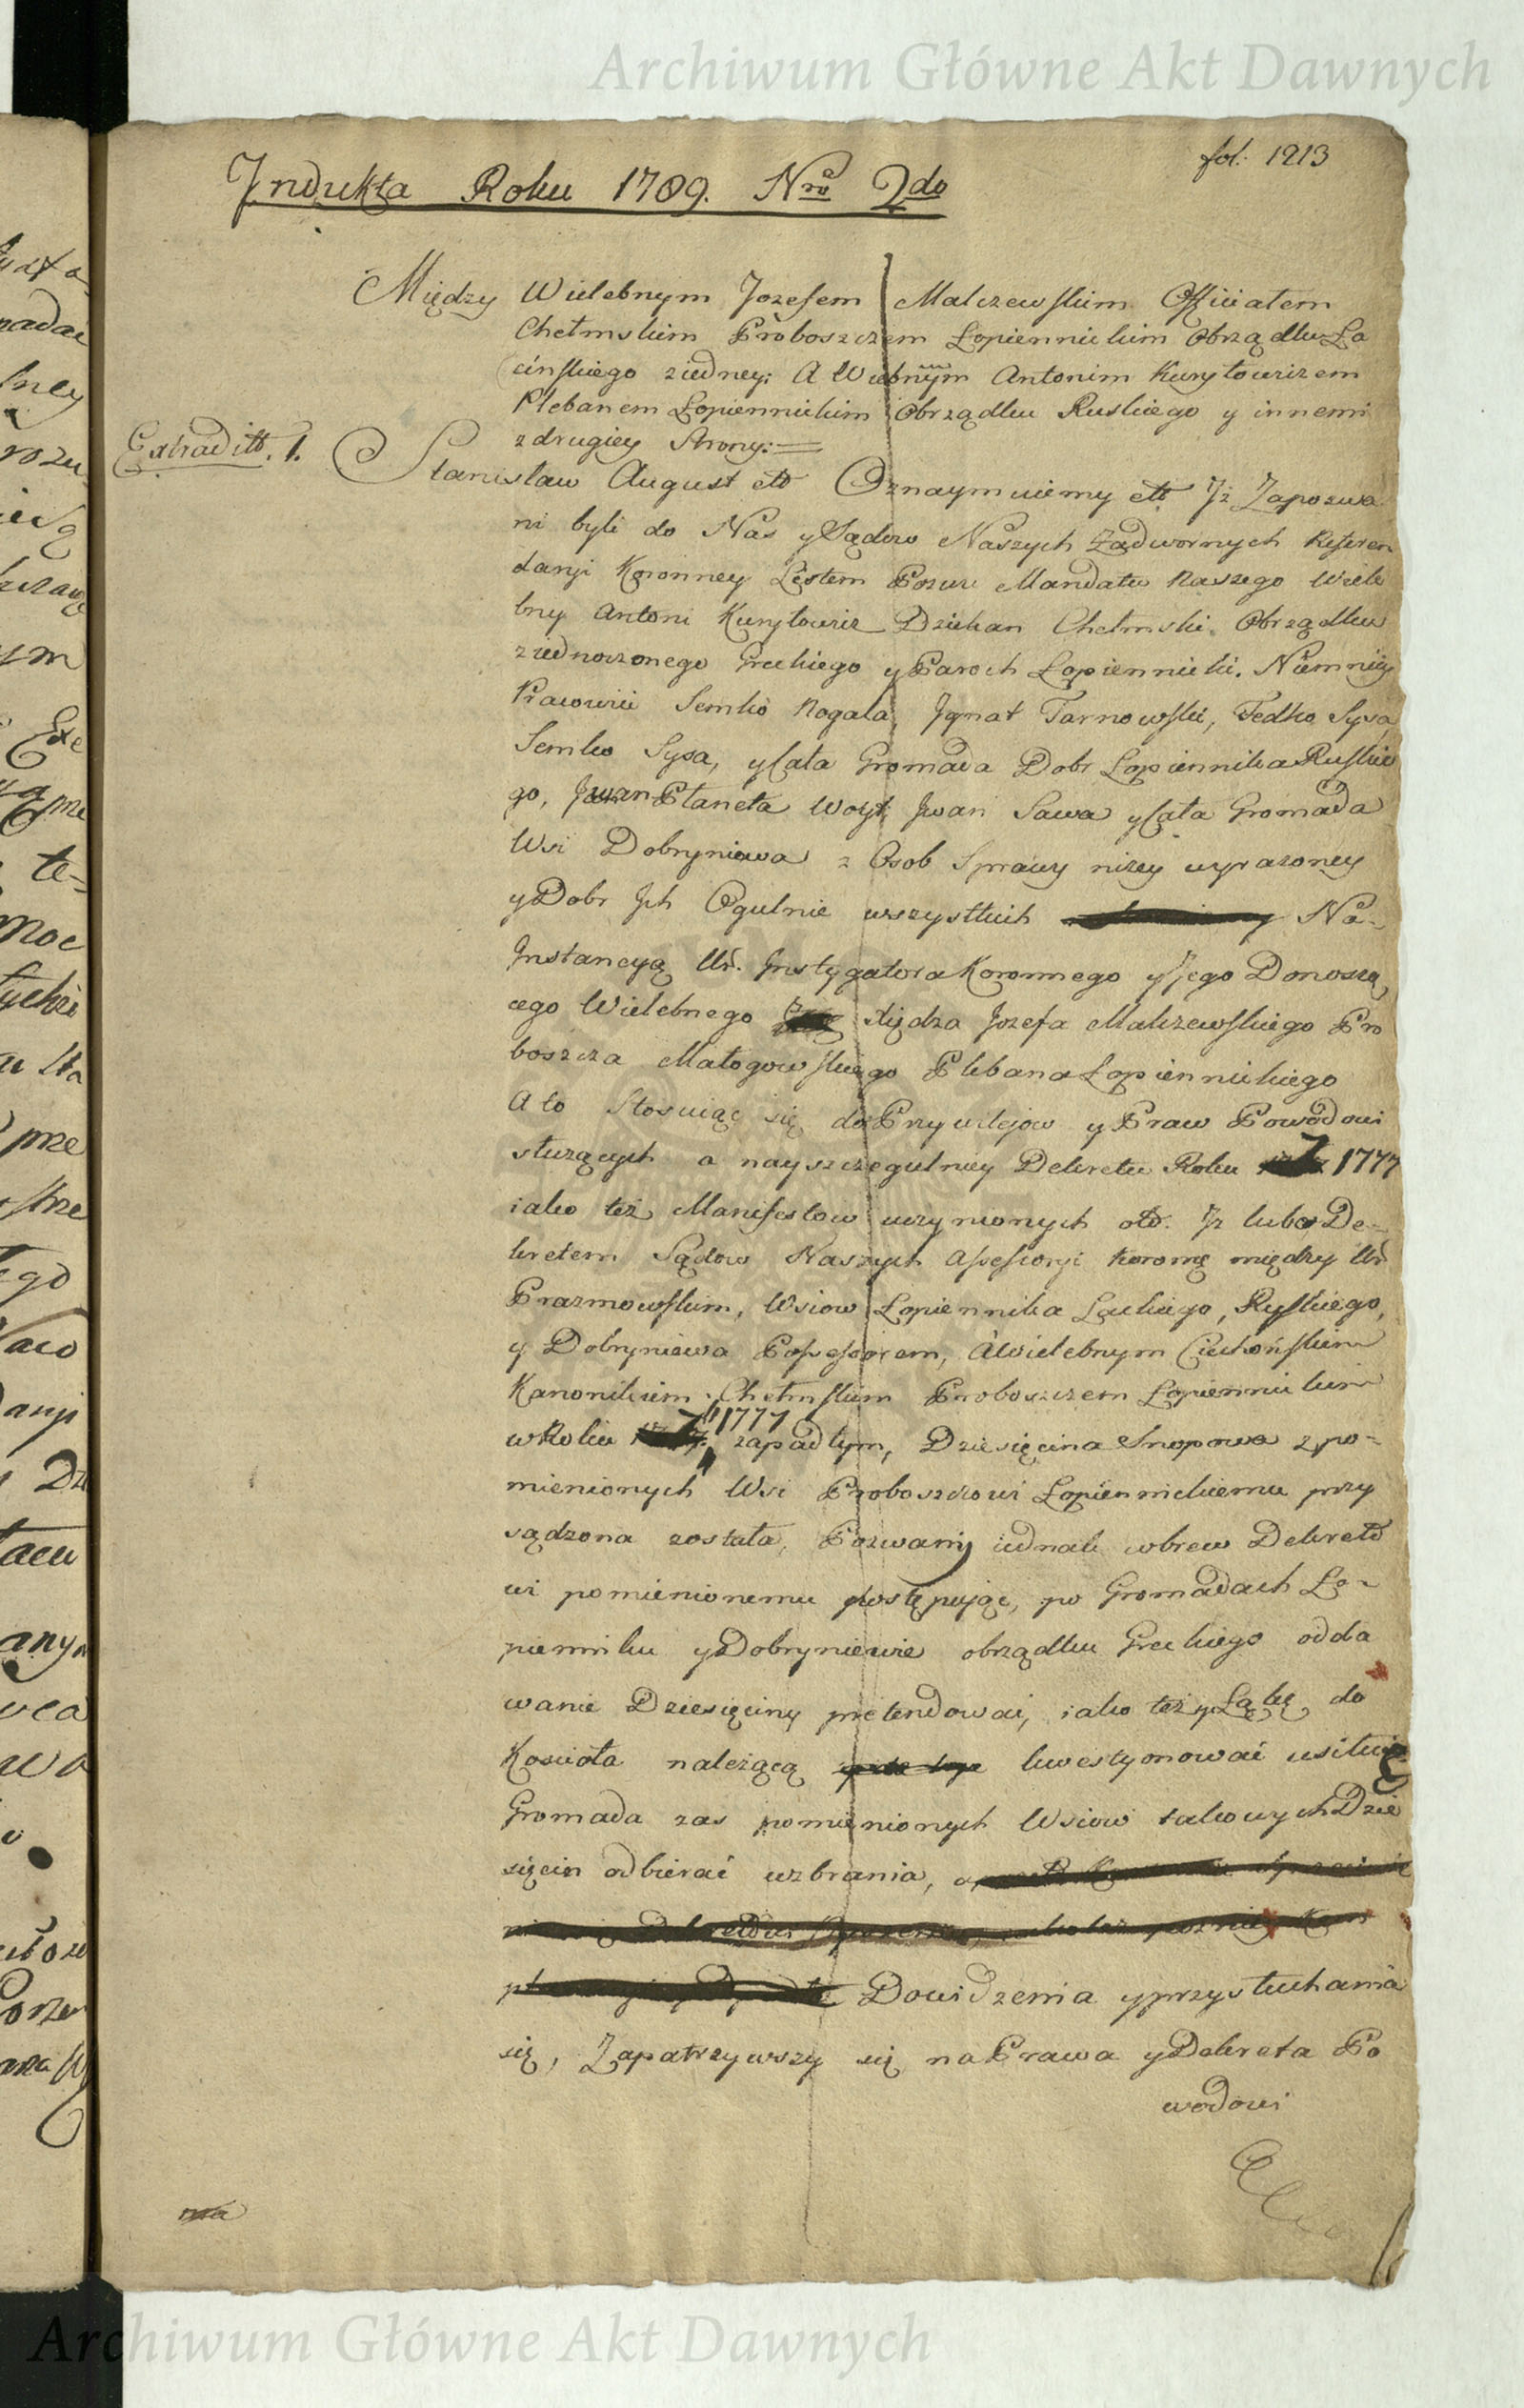 Archiwum Główne Akt Dawnych
fol. 1213
Jndukta Roku 1789. Nro 2do
Między Wielebnym Jozefem Malczewskim Officiałem
Chełmskim Proboszczem Łopiennickim Obrządku Ła
cinskiego ziedney; A Wiebnym Antonim Kuryłowiczem
Plebanem Łopiennickim Obrządku Ruskiego y innemi
z drugiey Strony:=
Extraditt. 1.
Stanisław August ett Oznaymuiemy ett Jż Zapozwa
ni byli do Nas y Sądow Naszych Zadwornych Referen
daryi Koronney Listem Pozwu Mandatu Naszego Wiele
bny Antoni Kuryłowicz Dziekan Chełmski Obrządku
ziednoczonego Greckiego y Paroch Łopiennicki. Niemniey
Pracowici Semko Rogala, Jgnat Tarnowski, Fedko Sysa
Semko Sysa, y Cała Gromada Dobr Łopiennika Ruskie
go, Jwan Planeta Woyt, Jwan Sawa y Cała Gromada
Wsi Dobryniowa z Osob Sprawy niżey wyrażoney
y Dobr Jch Ogulnie wszystkich Na-
Jnstancyą Ur. Jnstygatora Koronnego y Jego Donoszą
cego Wielebnego Xiędza Jozefa Malczewskiego Pro
boszcza Małogowskiego Plebana Łopiennickiego
A to Stosuiąc się do Przywilejow y Praw Powodowi
służących a nayszczegulniey Dekretu Roku 1777
iako też Manifestow uczynionych ett. Jż lubo De-
kretem Sądow Naszych Assessoryi Koronney między Ur
Prazmowskim, Wsiow Łopiennika Lackiego, Ruskiego,
y Dobryniewa Possessorem, A Wielebnym Ciechońskim
Kanonikiem Chełmskim Proboszczem Łopiennickim
w Roku 1777 zapadłym, Dziesięcina Snopowa z po-
mienionych Wsi Proboszczowi Łopiennickiemu przy
sądzona została, Pozwany iednak wbrew Dekreto
wi pomienionemu postępując, po Gromadach Ło-
pienniku y Dobryniewie obrządku Greckiego odda
wanie Dziesięciny pretendować, iako też y Łąkę do
Kościoła należącą kwestyonować usiłuie
Gromada zas pomienionych Wsiow takowych Dzie
sięcin odbierać wzbrania,
Dowidzenia y przysłuchania
się, Zapatrzywszy się na Prawa y Dekreta Po
wodowi
Archiwum Główne Akt Dawnych